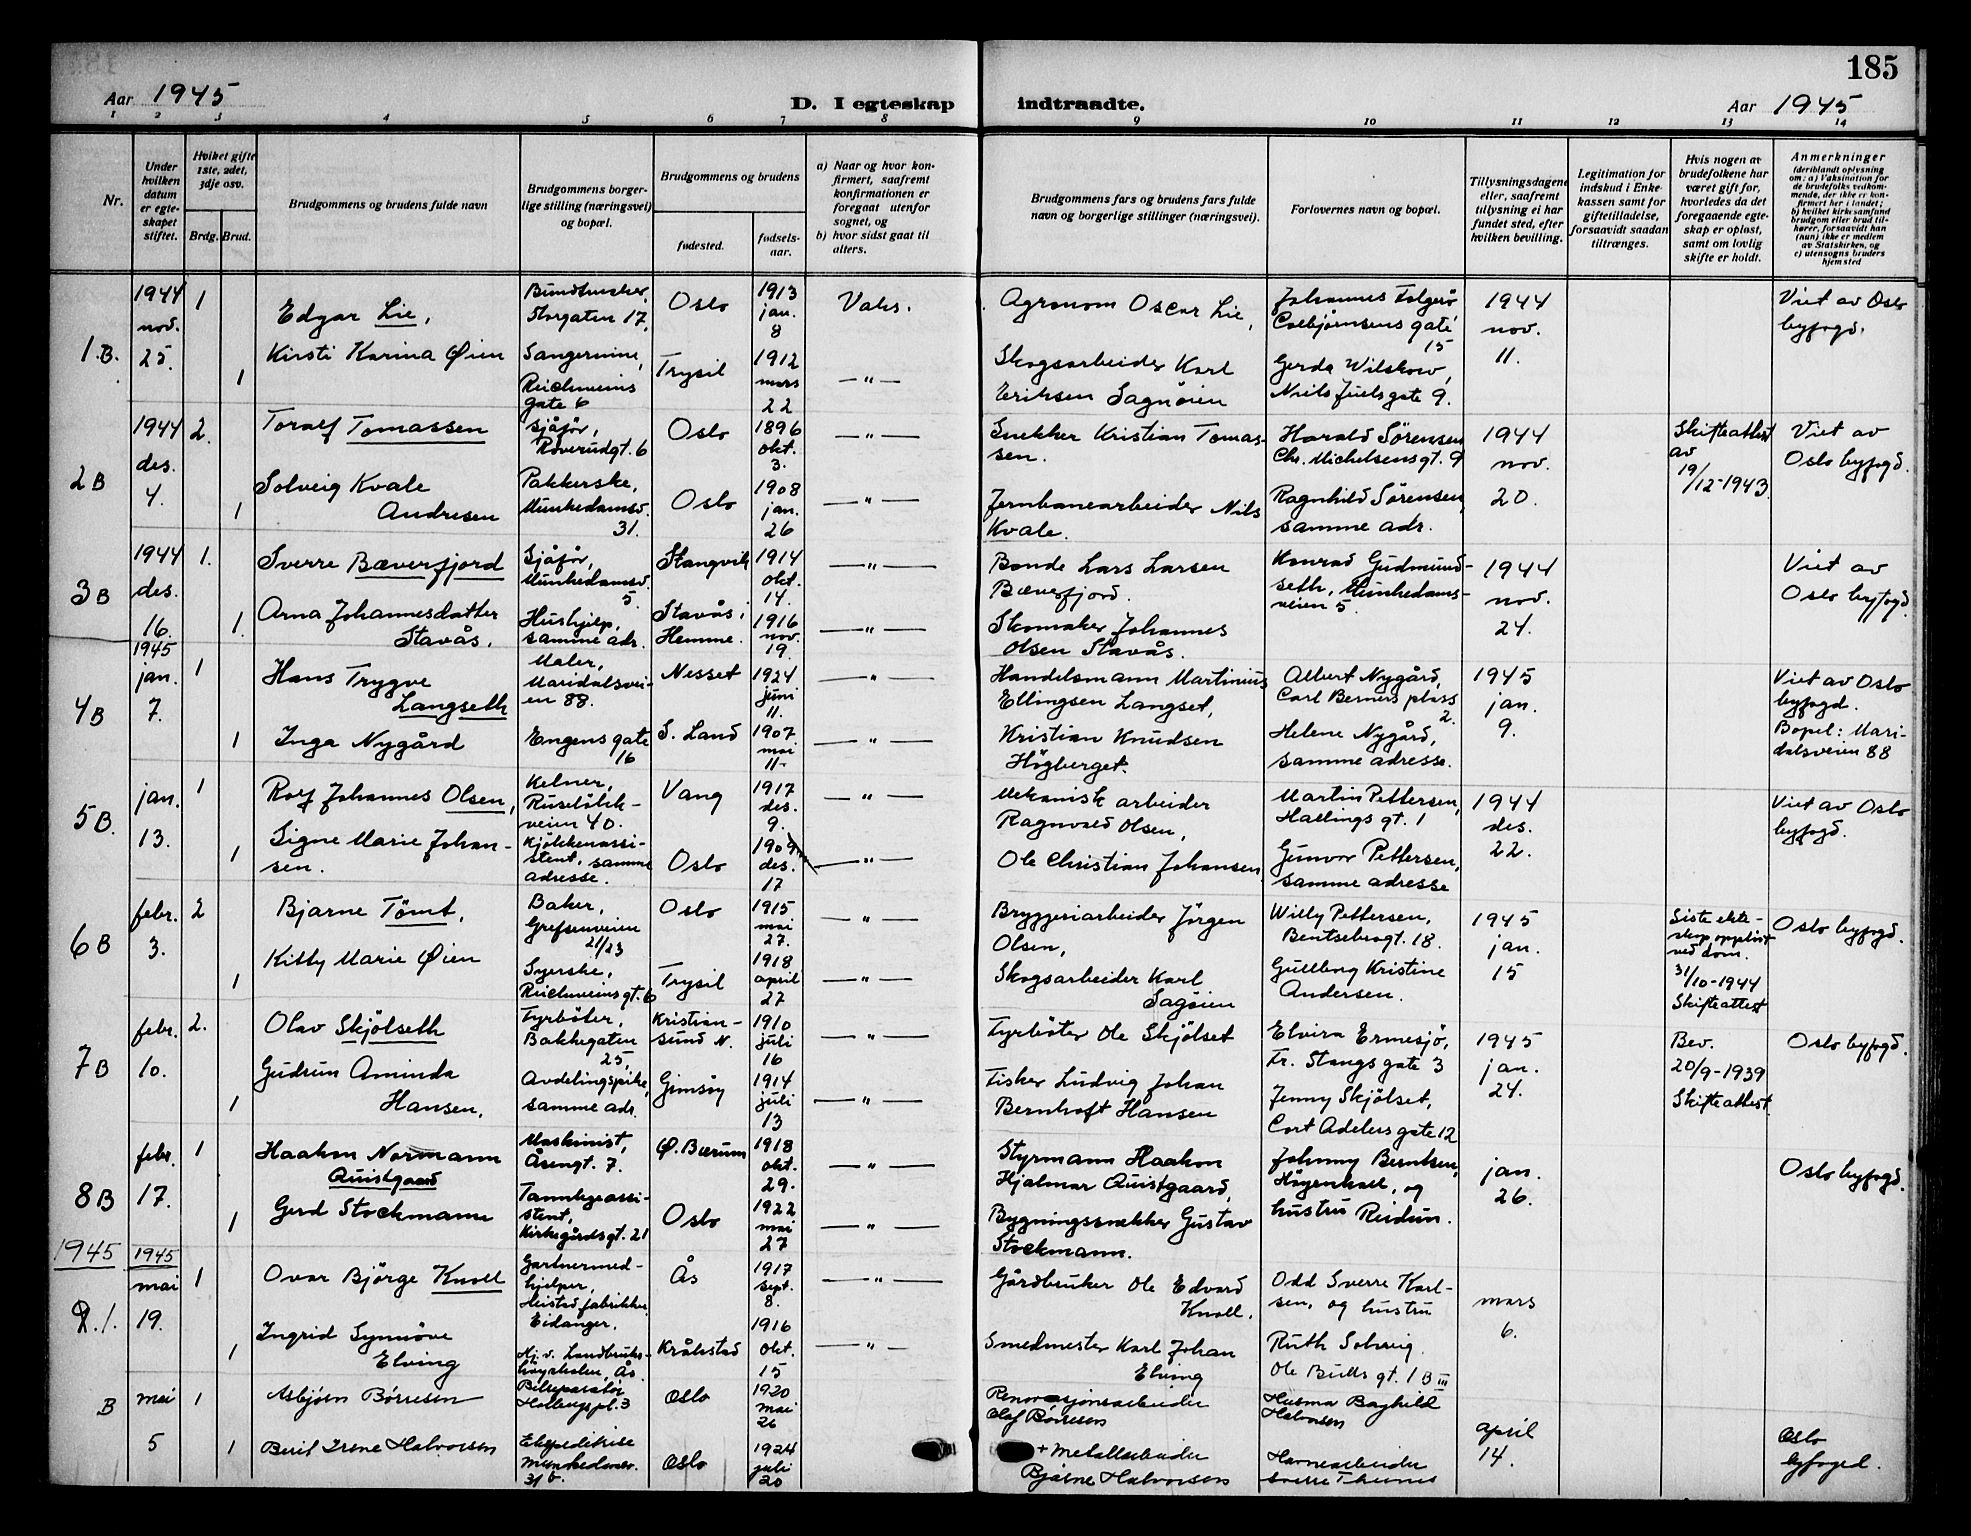 185
Aar 1945
D. I egteskap indtraadte.
Aar 1945
1 2 3 4 5 6 7 8 9 10 11 12 13 14
Nr.
Under hvilken datum er egteskapet stiftet.
Hvilket gifte 1ste, 2det, 3dje osv.
Brdg. Brud.
Brudgommens og brudens fulde navn
Brudgommens borgerlige stilling (næringsvei) og bopæl.
Brudgommens og brudens
fødested.
fødselsaar.
a) Naar og hvor konfirmert, saafremt konfirmationen er foregaat utenfor sognet, og
b) hvor sidst gaat til alters.
Brudgommens fars og brudens fars fulde navn og borgerlige stillinger (næringsvei).
Forlovernes navn og bopæl.
Tillysningsdagene eller, saafremt tillysning ei har fundet sted, efter hvilken bevilling.
Legitimation for indskud i Enkekassen samt for giftetilladelse, forsaavidt saadan tiltrænges.
Hvis nogen av brudefolkene har været gift før, hvorledes da det foregaaende egteskap er opløst, samt om lovlig skifte er holdt.
Anmerkninger (deriblandt oplysning om: a) Vaksination for de brudefolks vedkommende, der ikke er konfirmert her i landet; b) hvilket kirkesamfund brudgom eller brud tilhører, forsaavidt han (hun) ikke er medlem av Statskirken, og c) utensogns bruders hjemsted
1.B.
1944 nov. 25.
1
Edgar Lie,
Bundtmaker, Storgaten 17,
Oslo
1913 jan. 8
Vaks.
Agronom Oscar Lie,
Johannes Folgerö, Coldjørnsens gate 15
1944 nov. 11.
Viet av Oslo byfogd.
1
Kirsti Karina Øien
Sangerinne, Reichweins gate 6
Trysil
1912 mars 22
— " —
Skogsarbeider Karl Eriksen Sagnöien
Gerda Wilskow, Niels Juels gate 9.
2 B
1944 des. 4.
2.
Toralf Tomassen
Sjåfør, Röverudgt. 6
Oslo
1896 okt. 3.
— " —
Snekker Kristian Tomassen.
Harald Sörensen Chr. Michelsens gt. 9
1944 nov. 20.
Skifteattest av 19/12-1943
Viet av Oslo byfogd.
1
Solveig Kvale Andresen
Pakkerske, Munkedamsv. 31.
Oslo
1908 jan. 26
— " —
Jernbanearbeider Nils Kvale.
Ragnhild Sörensen, samme adr.
3 B
1944 des. 16.
1.
Sverre Bæverfjord
Sjåfør, Munkedamsv. 5.
Stangvik
1914 okt. 14.
— " —
Bonde Lars Larsen Bæverfjord.
Konrad Gudmundseth, Munkedamsveien 5.
1944 nov. 24.
Viet av Oslo byfogd.
1.
Arna Johannesdatter Stavås.
Hushjelp, samme adr.
Stavås i Hemne.
1916 nov. 19.
— " —
Skomaker Johannes Olsen Stavås.
4 B
1945 jan. 7.
1
Hans Trygve Langseth
Maler, Maridalsveien 88.
Nesset
1924 juni 11.
— " —
Handelsmann Martinius Ellingsen Langset,
Albert Nygård, Carl Berners plass 2.
1945 jan. 9.
Viet av Oslo byfogd. Bopel: Maridalsveien 88
1
Inga Nygård
Engens gate 16
S. Land
1907 mai 11.
— " —
Kristian Knudsen Högberget.
Helene Nygård, samme adresse.
5 B.
jan. 13.
1
Rolf Johannes Olsen,
Kelner, Ruselökkveien 40.
Vang
1917 des. 9.
— " —
Mekanisk arbeider Ragnvald Olsen,
Martin Pettersen, Hallings gt. 1
1944 des. 22.
Viet av Oslo byfogd.
1
Signe Marie Johansen.
Kjökkenassistent, samme adresse.
Oslo
1909 des. 17
— " —
Ole Christian Johansen
Gunvor Pettersen, samme adresse
6 B
febr. 3.
2
Bjarne Tömt,
Baker, Grefsenveien 21/23
Oslo
1915 mai 27.
— " —
Bryggeriarbeider Jörgen Olsen,
Willy Pettersen, Bentsebrogt. 18.
1945 jan. 15
Siste ekteskap opplöst ved dom. 31/10-1944 Skifteattest
Oslo byfogd.
1
Kitty Marie Øien
Syerske, Reichweinsgt. 6
Trysil
1918 april 27
— " —
Skogsarbeider Karl Sagöien
Gullborg Kristine Andersen.
7 B
febr. 10.
2.
Olav Skjölseth
Fyrböter, Bakkegaten 25,
Kristiansund N.
1910 juli 16
— " —
Fyrböter Ole Skjölset
Elvira Ermesjö, Fr. Stangs gate 3
1945 jan. 24.
Bev. 20/9-1939 Skifteattest
Oslo byfogd.
1
Gudrun Aminda Hansen,
Avdelingspike, samme adr.
Gimsöy
1914 juli 13
— " —
Fisker Ludvig Johan Bernhoft Hansen
Jenny Skjölset, Cort Adelers gate 12
8 B
febr. 17.
1
Haakon Normann Quistgaard
Maskinist, Åsengt. 7.
Ø. Bærum
1918 okt. 29.
— " —
Styrmann Haakon Hjalmar Quistgaard,
Johnny Berntsen, Höyenhall, og hustru Reidun.
jan. 26.
Oslo byfogd.
1
Gerd Stockmann
Tannlegeassistent, Kirkegårdsgt. 21
Oslo
1922 mai 27
— " —
Bygningssnekker Gustav Stockmann.
1945
1945
1.
mai 19.
1
Ovar Bjørge Knoll
Gartnermedhjelper, Heistad fabrikker Eidanger.
Ås
1917 sept. 8.
— " —
Gårdbruker Ole Edvard Knoll.
Odd Sverre Karlsen, og hustru
mars 6.
1
Ingrid Synnöve Elving
Hj. v. Landbrukshögskolen, Ås.
Kråkstad
1916 okt. 15
— " —
Smedmester Karl Johan Elving
Ruth Solveig. Ole Bulls gt. 1 B III
B
mai 5
1
Asbjørn Børresen
Bilreparatør Holbergs pl. 3
Oslo
1920 mai 26
Renovasjonsarbeider Olaf Børresen
Halvorsen
april 14.
Oslo byfoged.
1
Berit Irene Halvorsen
Ekspeditrise Munkedamsv. 31 b.
Oslo
1924 juli 20
+ Metallarbeider Bjarne Halvorsen
Sverre